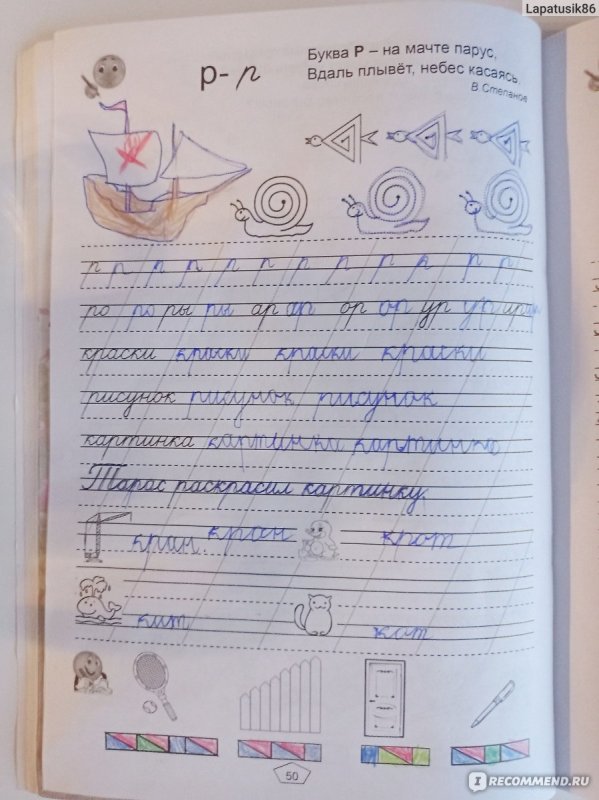 Lapatusik86
р- р
Буква Р – на мачте парус,
Вдаль плывёт, небес касаясь.
В. Степанов
р р р р р р р р р р р р р
ро ро ры ры ар ар ор ор ур ур ир ир
краски краски краски краски
рисунок рисунок рисунок
картинка картинка картинка
Тарас раскрасил картинку.
кран. кран крот
кит кот
50
IRECOMMEND.RU